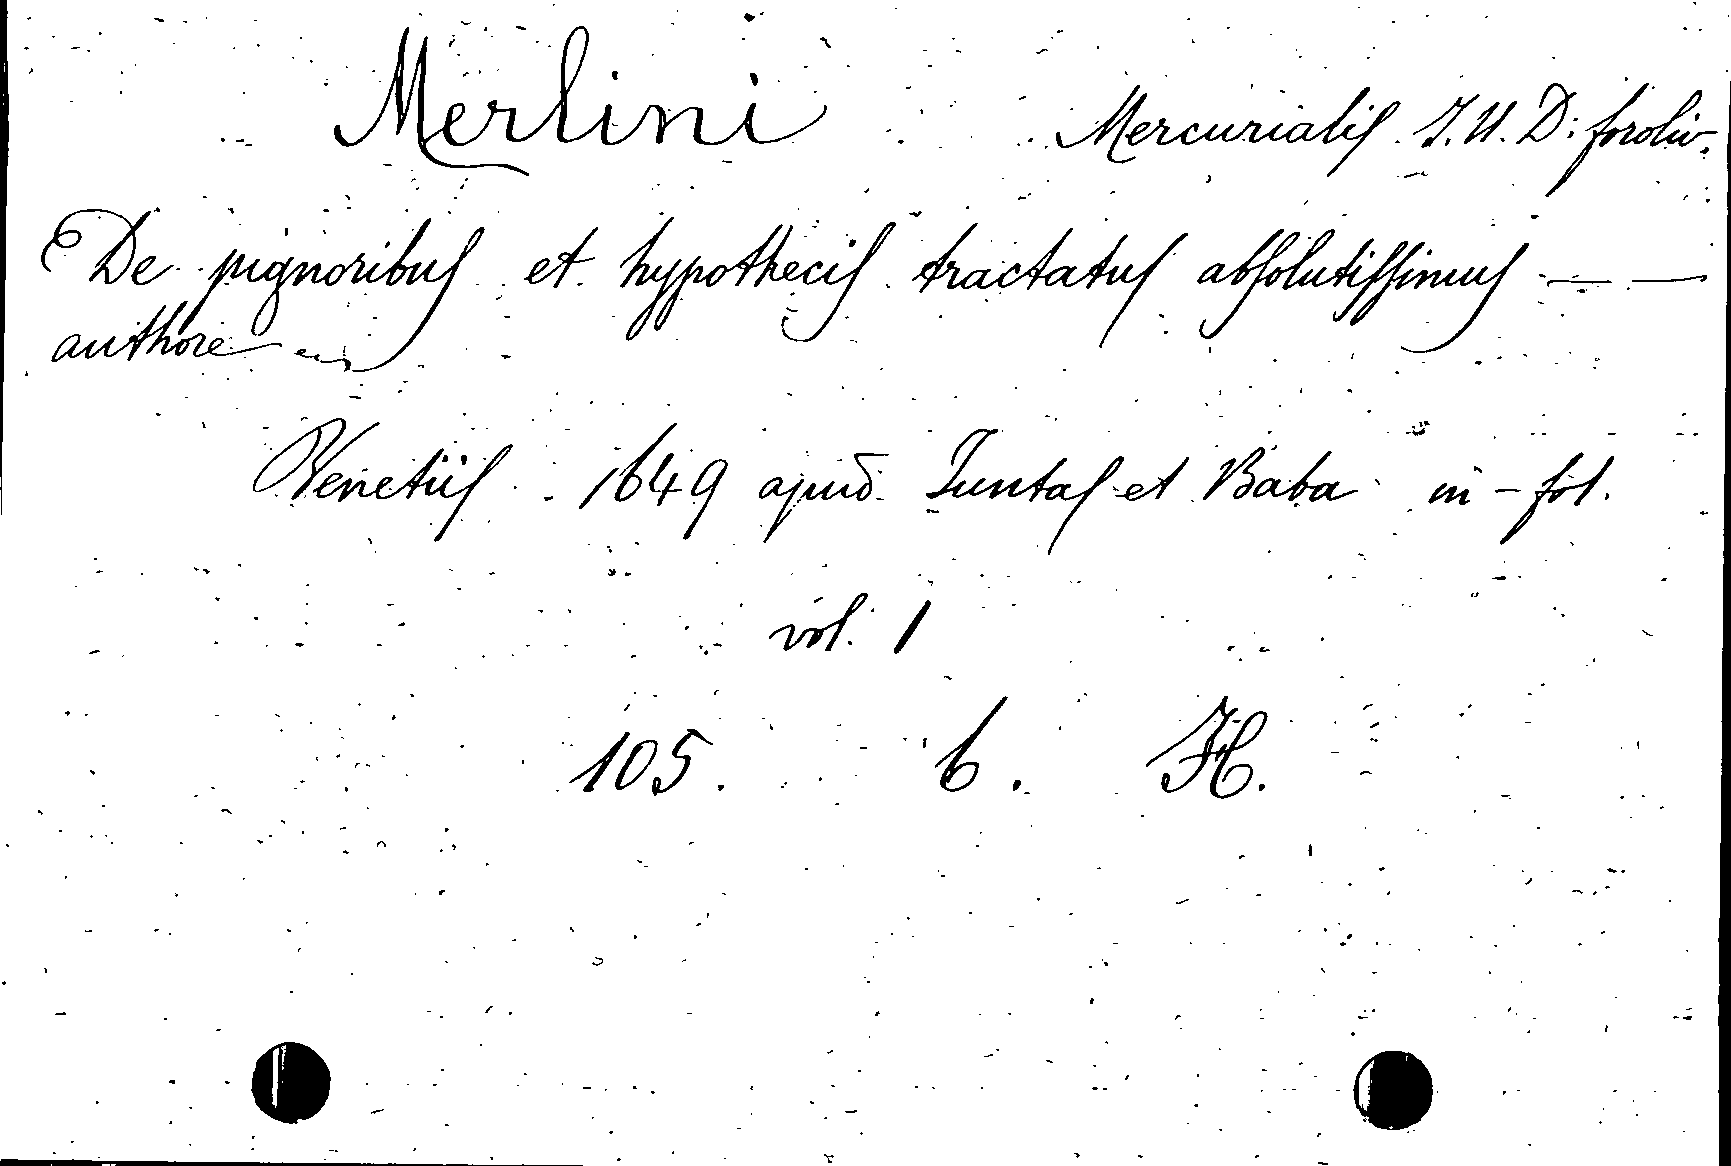 Merlini Mercurialis J. U. D: foroliv.
De pignoribus et hypothecis tractatus absolutissimus — —
authore
Venetiis 1649 apud Juntas et Baba in-fol.
vol. 1
105. 6. H.